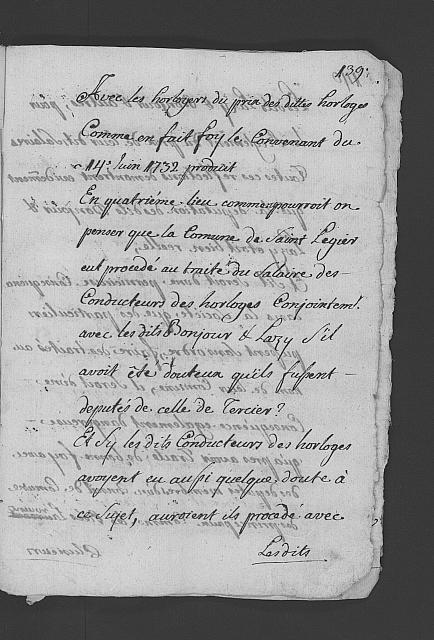 139.
Avec les horlogers du prix des dittes horloges
Comme en fait foy le Convenant du
14.e Juin 1732 produit
En quatriéme lieu comme pourroit on
penser que la Comune de Saint Legier
eut procedé au traité du Salaire des
Conducteurs des horloges Conjointem.t
avec les dits Bonjour & Lazy S'il
avoit êté douteux qu'ils fussent
deputés de celle de Tercier?
Et Sy les dits Conducteurs des horloges
avoyent eu aussi quelque doute à
ce Sujet, auroient ils procedé avec
Lesdits